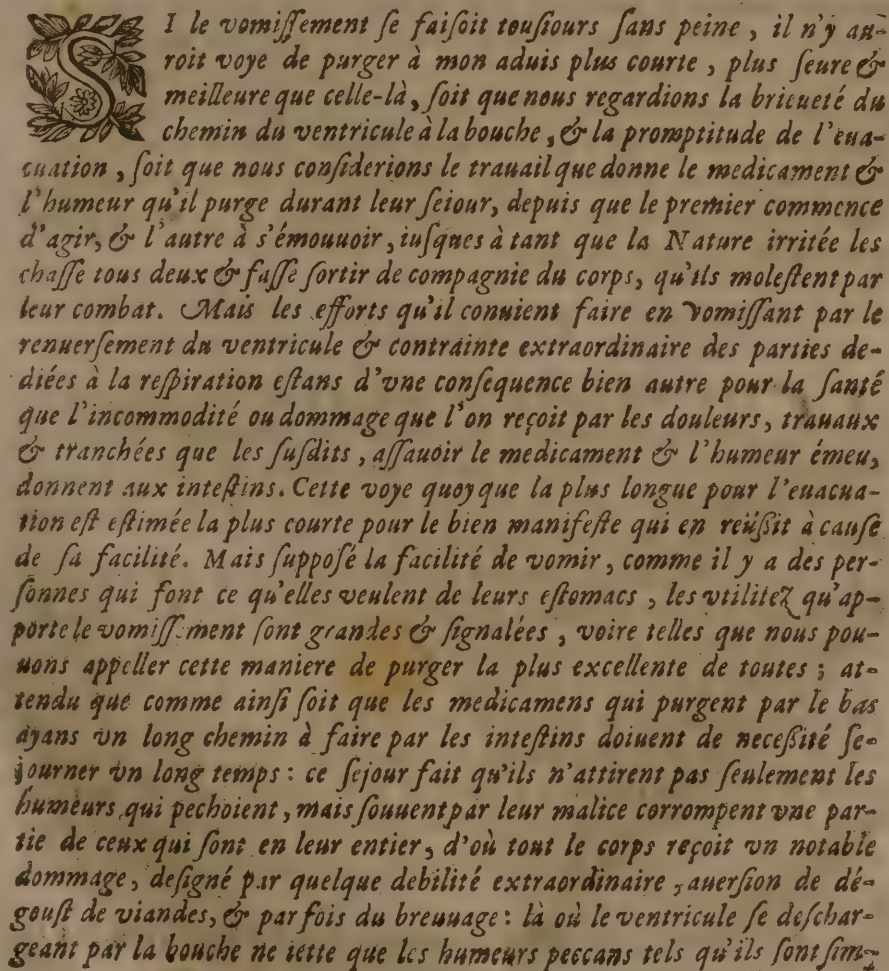 SI le vomiſſement ſe faiſoit touſiours ſans peine, il n'y au-
roit voye de purger à mon aduis plus courte, plus ſeure &
meilleure que celle-là, ſoit que nous regardions la brieueté du
chemin du ventricule à la bouche, & la promptitude de l'eua-
cuation, ſoit que nous conſiderions le trauail que donne le medicament &
l'humeur qu'il purge durant leur ſeiour, depuis que le premier commence
d'agir, & l'autre à s'émouuoir, iuſques à tant que la Nature irritée les
chaſſe tous deux & faſſe ſortir de compagnie du corps, qu'ils moleſtent par
leur combat. Mais les efforts qu'il conuient faire en vomiſſant par le
renuerſement du ventricule & contrainte extraordinaire des parties de-
diées à la reſpiration eſtans d'vne conſequence bien autre pour la ſanté
que l'incommodité ou dommage que l'on reçoit par les douleurs, trauaux
& tranchées que les ſuſdits, aſſauoir le medicament & l'humeur émeu,
donnent aux inteſtins. Cette voye quoy que la plus longue pour l'euacua-
tion eſt eſtimée la plus courte pour le bien manifeſte qui en reüſſit à cauſe
de ſa facilité. Mais ſuppoſé la facilité de vomir, comme il y a des per-
ſonnes qui font ce qu'elles veulent de leurs eſtomacs, les vtilitez qu'ap-
porte le vomiſſement ſont grandes & ſignalées, voire telles que nous pou-
uons appeller cette maniere de purger la plus excellente de toutes; at-
tendu que comme ainſi ſoit que les medicamens qui purgent par le bas
ayans vn long chemin à faire par les inteſtins doiuent de neceſſité ſe-
journer vn long temps: ce ſejour fait qu'ils n'attirent pas ſeulement les
humeurs qui pechoient, mais ſouuent par leur malice corrompent vne par-
tie de ceux qui ſont en leur entier, d'où tout le corps reçoit vn notable
dommage, deſigné par quelque debilité extraordinaire, auerſion de dé-
gouſt de viandes, & par fois du breuuage: là où le ventricule ſe deſchar-
geant par la bouche ne iette que les humeurs peccans tels qu'ils ſont ſim-